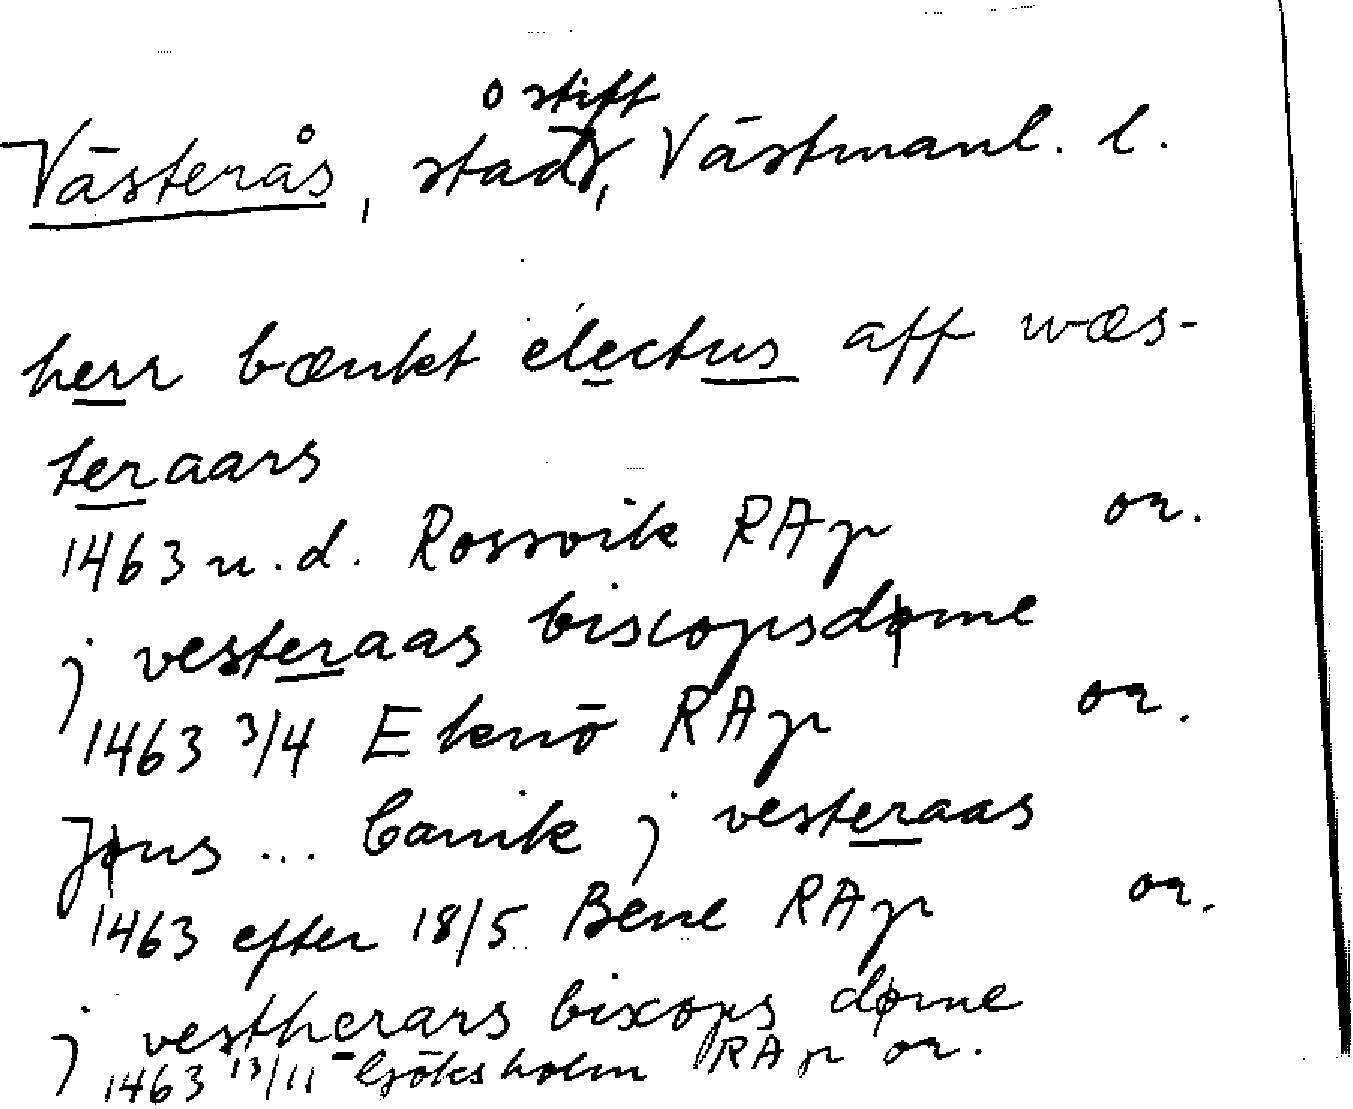 o stift
Västerås, stad, Västmanl. l.
herr bænkt electus aff wæs-
teraars
1463 u.d. Rossvik RAp or.
j vesteraas biscopsdøme
1463 3/4 Eknö RAp or.
Jøns ... Canik j vesteraas
1463 efter 18/5 Bene RAp or.
j vestherars bixcops døme
1463 13/11 Göksholm RAp or.